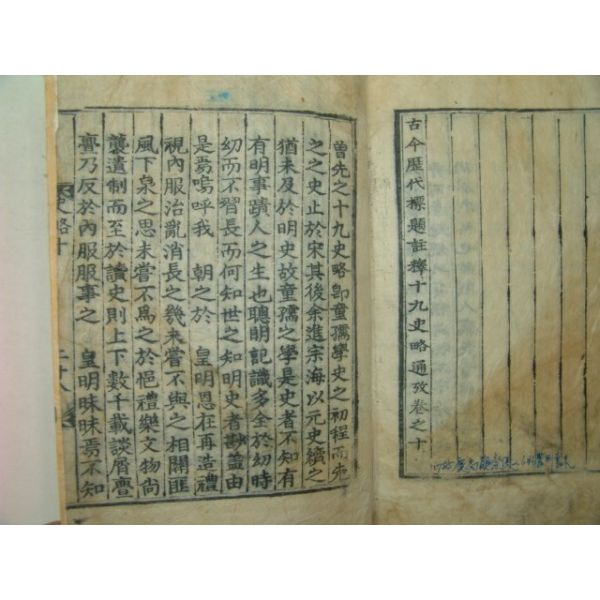 古今歷代標題註釋十九史略通攷卷之十
曾先之十九史略卽童孺學史之初程而先
之之史止於宋其後余進宗海以元史續之
猶未及於明史故童孺之學是史者不知有
有明事蹟人之生也聰明記識多全於幼時
幼而不習長而何知世之知明史者尠蓋由
是焉嗚呼我 朝之於 皇明恩在再造禮
視內服治亂消長之幾未嘗不與之相關匪
風下泉之思未嘗不爲之於悒禮樂文物尙
襲遺制而至於讀史則上下數千載談屑亹
亹乃反於內服服事之 皇明昧昧焉不知
史略十